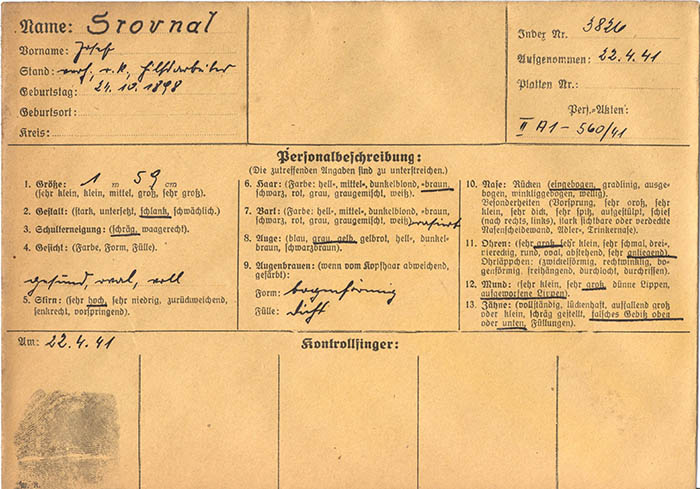 Name: Srovnal
Vorname: Josef
Stand: verh., r. k., Hilfsarbeiter
Geburtstag: 24. 10. 1898
Geburtsort:
Kreis:
Index Nr. 3826
Aufgenommen: 22.4.41
Platten Nr.:
Pers.-Akten:
II A1 - 560/41
Personalbeschreibung:
(Die zutreffenden Angaben sind zu unterstreichen.)
1. Größe: 1 m 59 cm
(sehr klein, klein, mittel, groß, sehr groß).
2. Gestalt: (stark, untersetzt, schlank, schwächlich).
3. Schulterneigung: (schräg, waagerecht).
4. Gesicht: (Farbe, Form, Fülle).
gesund, oval, voll
5. Stirn: (sehr hoch, sehr niedrig, zurückweichend,
senkrecht, vorspringend).
6. Haar: (Farbe: hell-, mittel-, dunkelblond, -braun,
schwarz, rot, grau, graugemischt, weiß).
7. Bart: (Farbe: hell-, mittel-, dunkelblond, -braun,
schwarz, rot, grau, graugemischt, weiß). rasiert
8. Auge: (blau, grau, gelb, gelbrot, hell-, dunkel-
braun, schwarzbraun).
9. Augenbrauen: (wenn vom Kopfhaar abweichend,
gefärbt):
Form: bogenförmig
Fülle: dicht
10. Nase: Rücken (eingebogen, gradlinig, ausge-
bogen, winkliggebogen, wellig).
Besonderheiten (Vorsprung, sehr groß, sehr
klein, sehr dick, sehr spitz, aufgestülpt, schief
(nach rechts, links), stark sichtbare oder verdeckte
Nasenscheidewand, Adler-, Trinkernase).
11. Ohren: (sehr groß, sehr klein, sehr schmal, drei-,
viereckig, rund, oval, abstehend, sehr anliegend).
Ohrläppchen: (zwickelförmig, rechtwinklig, bo-
genförmig, freihängend, durchlocht, durchrissen).
12. Mund: (sehr klein, sehr groß, dünne Lippen,
aufgeworfene Lippen).
13. Zähne: (vollständig, lückenhaft, auffallend groß
oder klein, schräg gestellt, falsches Gebiß oben
oder unten, Füllungen).
Am: 22.4.41
Kontrollfinger: